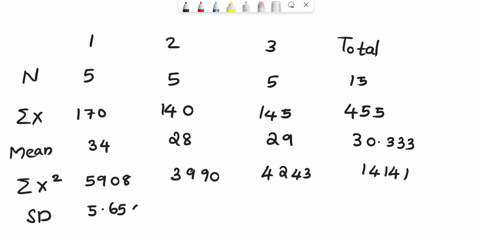 1 2 3 Total
N 5 5 5 15
Σx 170 140 145 455
Mean 34 28 29 30.333
Σx² 5908 3990 4243 14141
SD 5.65